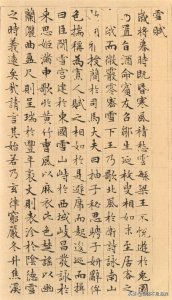 雪賦
歲將暮時既昏寒風積愁雲繁梁王不悅遊於兔園
乃置旨酒命賓友召鄒生延枚叟相如末至居客之
右俄而微霰零密雪下王乃歌北風於衛詩詠南山
於周雅授簡於司馬大夫曰抽子秘思騁子妍辭侔
色揣稱爲寡人賦之相如於是避席而起逡巡而揖
曰臣聞雪宮建於東國雪山峙於西域岐昌發詠於
來思姬滿申歌於黃竹曹風以麻衣比色楚謠以幽
蘭儷曲盈尺則呈瑞於豐年袤丈則表沴於陰德雪
之時義遠矣哉請言其始若乃玄律窮嚴氣升焦溪